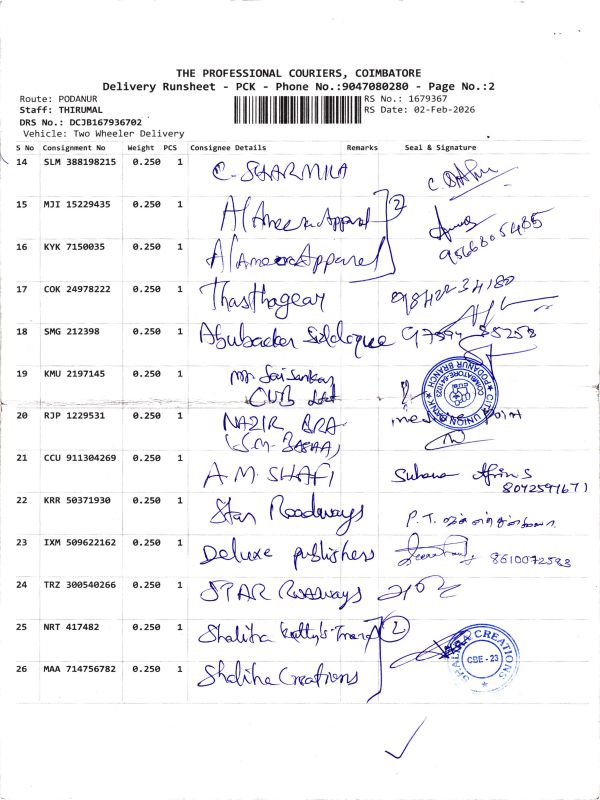 THE PROFESSIONAL COURIERS, COIMBATORE
Delivery Runsheet - PCK - Phone No.:9047080280 - Page No.:2
Route: PODANUR
Staff: THIRUMAL
DRS No.: DCJB167936702
Vehicle: Two Wheeler Delivery
RS No.: 1679367
RS Date: 02-Feb-2026
S No Consignment No Weight PCS Consignee Details Remarks Seal & Signature
14 SLM 388198215 0.250 1 C. SHARMILA
15 MJI 15229435 0.250 1 Al Ameera Apparel 2
9566805485
16 KYK 7150035 0.250 1 Al Ameera Apparel
17 COK 24978222 0.250 1 Thasthagear
18 SMG 212398 0.250 1 Abubacker Siddique
19 KMU 2197145 0.250 1 Mr Sai Sankar
CUB Ltd
CITY UNION BANK
PODANUR BRANCH
20 RJP 1229531 0.250 1 NAZIR BRA
21 CCU 911304269 0.250 1 A.M. SHAFI Suhana
22 KRR 50371930 0.250 1 Star Roadways P.T.
23 IXM 509622162 0.250 1 Deluxe publishers 8610072583
24 TRZ 300540266 0.250 1 STAR Roadways
25 NRT 417482 0.250 1 Shaliha 2
26 MAA 714756782 0.250 1 Shaliha Creations
CREATIONS
CBE - 23